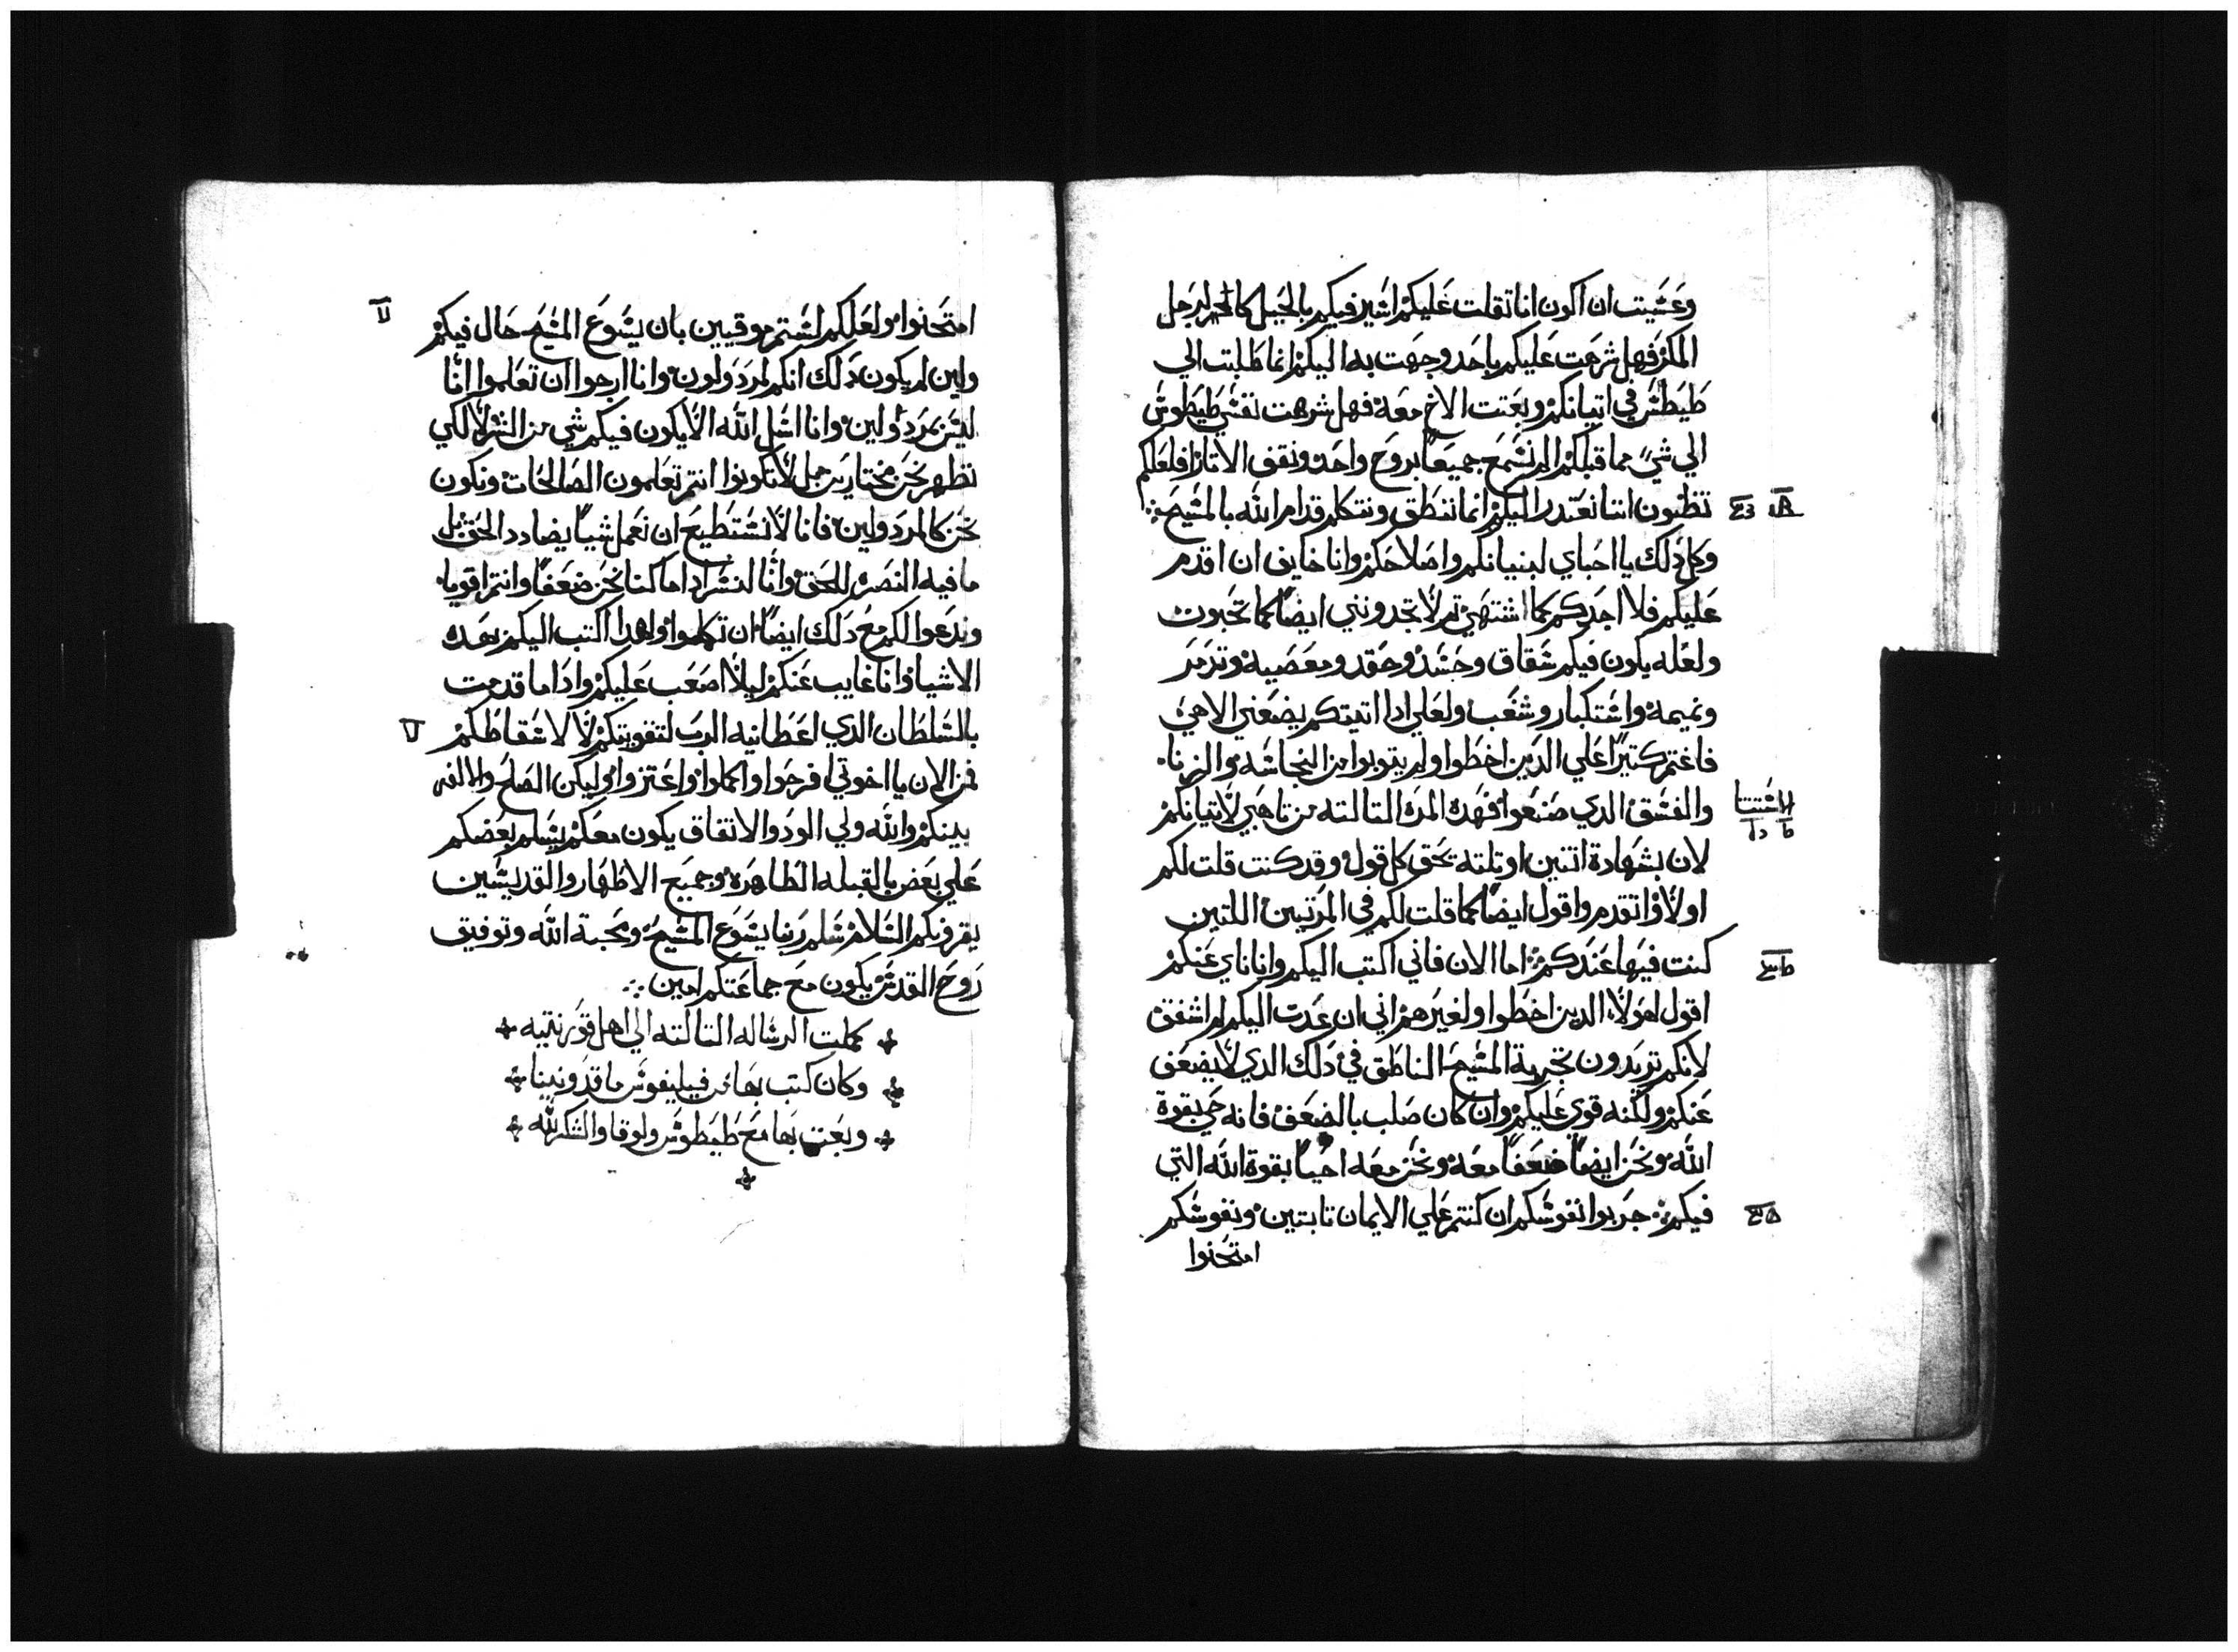 وعشيت ان اكون انا تقلت عليكم اسير فيكم بالحيل كالمحـ لرجل
المكر فهل شرهت عليكم باحد وجهت به اليكم انما طلبت الي
طيطس في اتيانكم وبعتت الاخ معه فهل شرهت نفس طيطوس
الي شي مما قبلكم الم نسمع جميعا بروح واحد ونقف الاتار افلعلكم
تظنون اننا نعتدر اليكم انما ننطق ونتكلم قدام الله بالمسيح
وكل دلك يا احباي لبنيانكم واصلاحكم وانا خايف ان اقدم
عليكم فلا اجدكم كما اشتهي تم لا تجدونني ايضا كما تحبون
ولعله يكون فيكم شقاق وحسد وحقد ومعصية وتزمر
ونميمه واستكبار وشغب ولعلي ادا اتيتكم يضعني الاهي
فاغتم كتيرا علي الدين اخطوا ولم يتوبوا من النجاسه والزنا
والفسق الدي صنعوا فهده المره التالته من تاهبي لاتيانكم
لان بشهادة اتنين او تلته يحق كل قول وقد كنت قلت لكم
اولا واتقدم واقول ايضا كما قلت لكم في المرتين اللتين
كنت فيها عندكم اما الان فاني اكتب اليكم وانا ناي عنكم
اقول لهولا الدين اخطوا ولغيرهم اني ان عدت اليكم لم اشفق
لانكم تريدون تجربة المسيح الناطق في دلك الدي لا يضعف
عنكم ولكنه قوي عليكم وان كان صلب بالضعف فانه حي بقوة
الله ونحن ايضا ضعفا معه ونحن معه احيا بقوة الله التي
فيكم جربوا نفوسكم ان كنتم علي الايمان تابتين ونفوسكم
امتحنوا
امتحنوا ولعلكم لستم موقيين بان يسوع المسيح حال فيكم
ولين لم يكون دلك انكم لمردولون وانا ارجوا ان تعلموا انا
ليس بمردولين وانا اسل الله الا يكون فيكم شي من الشر لا لكي
نظهر نحن مختارين بل لا تكونوا انتم تعلمون الصالحات ونكون
نحن كالمردولين فانا لا نستطيع ان نعمل شيا يضادد الحق بل
ما فيه النصر للحق وانا لنسر ادا ما كنا نحن ضعفا وانتم اقويا
وندعوا لكم مع دلك ايضا ان تكملوا ولهدا اكتب اليكم بهده
الاشيا وانا غايب عنكم ليلا اصعب عليكم وادا ما قدمت
بالسلطان الدي اعطانيه الرب لتقويتكم لا لاسقاطكم
فمن الان يا اخوتي افرحوا واكملوا واعتزوا وليكن الصلح والالفه
بينكم والله ولي الود والاتفاق يكون معكم يسلم بعضكم
علي بعض بالقبله الطاهره وجميع الاطهار والقديسين
يقرونكم السلام سلم ربنا يسوع المسيح ومحبة الله وتوفيق
روح القدس يكون مع جماعتكم امين
كملت الرساله التالته الي اهل قورنتيه
وكان كتب بها من فيليفوس ماقدونيا
وبعت بها مع طيطوس ولوقا والشكر لله